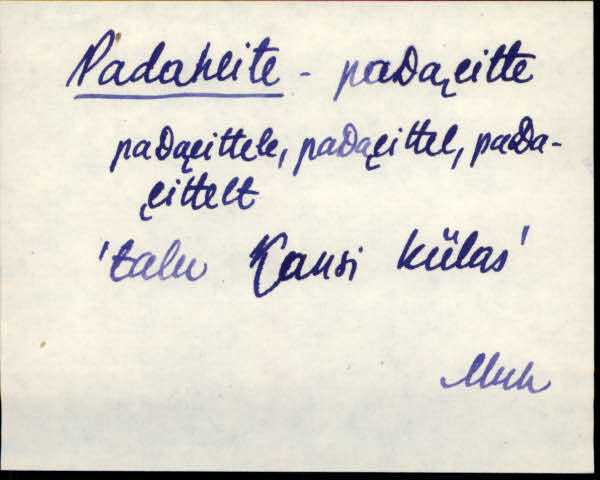 Padaheite - paDaꞔitte
paDaꞔittele, paDaꞔittel, paDa-
ꞔittelt
'talu Kansi külas'
Muh